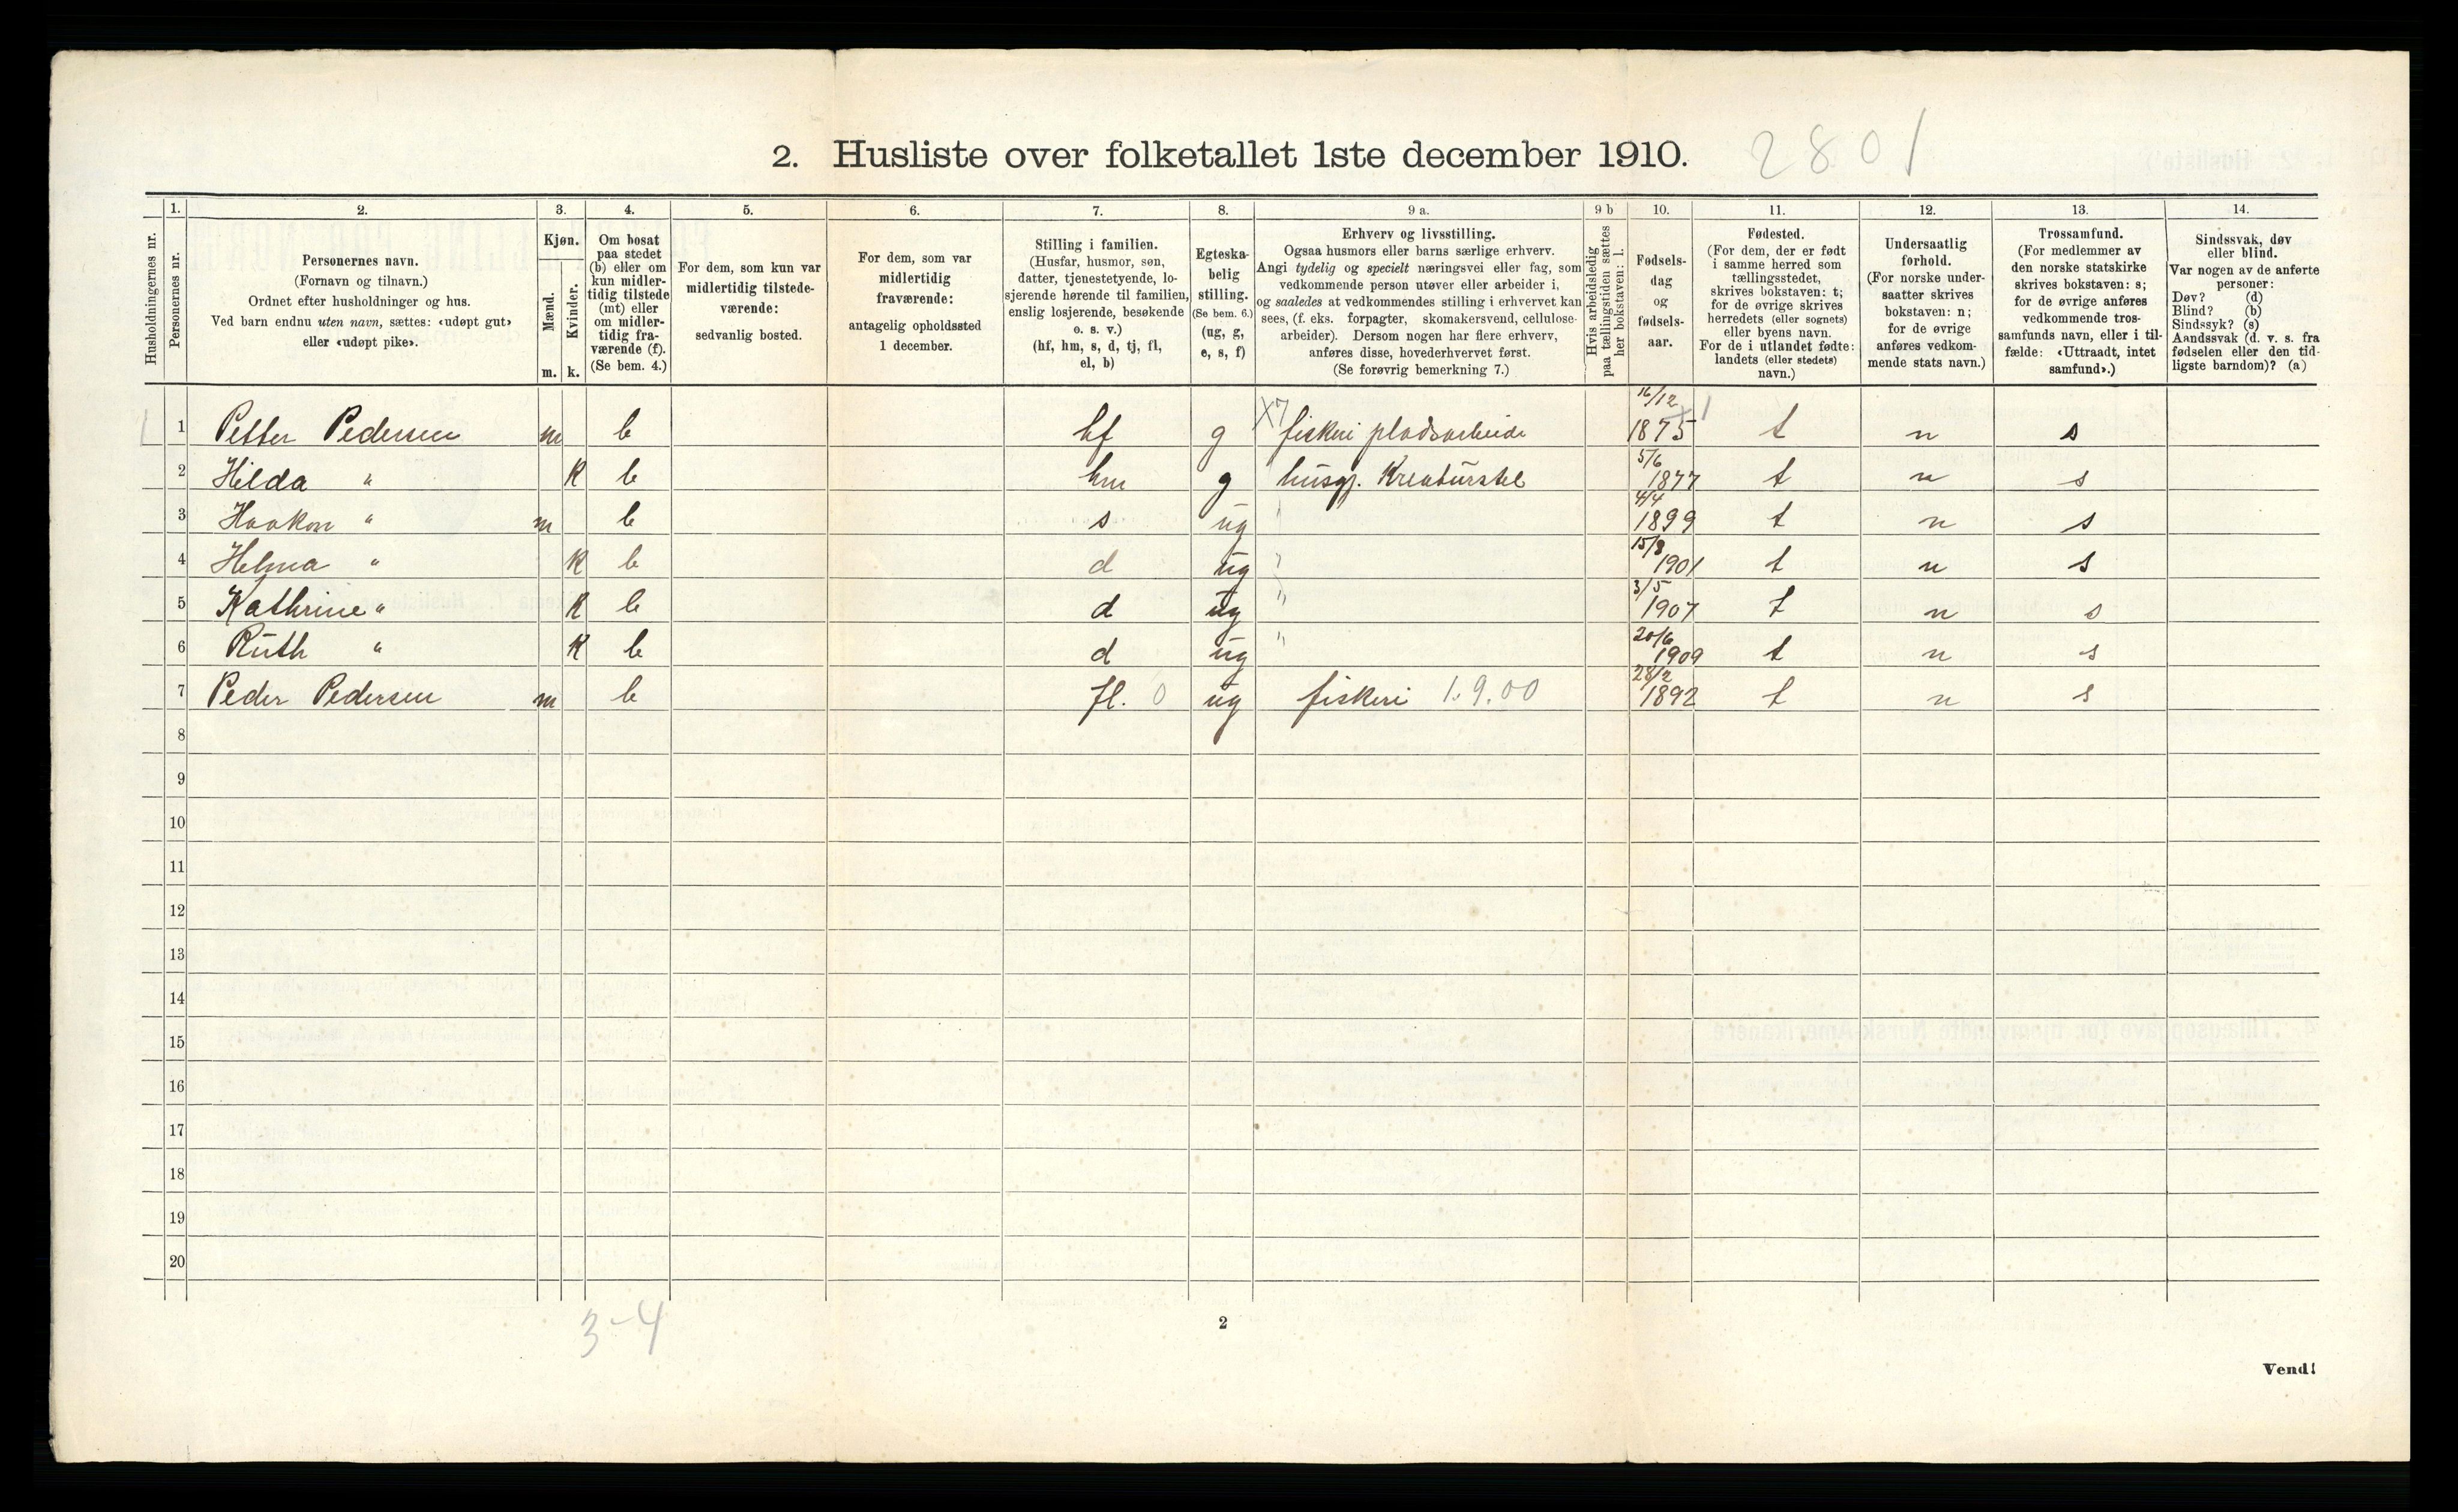 2. Husliste over folketallet 1ste december 1910. 2801
Husholdningernes nr.
1. Personernes nr.
2. Personernes navn.
(Fornavn og tilnavn.)
Ordnet efter husholdninger og hus.
Ved barn endnu uten navn, sættes: «udøpt gut»
eller «udøpt pike».
3. Kjøn.
Mænd. m.
Kvinder. k.
4. Om bosat
paa stedet
(b) eller om
kun midler-
tidig tilstede
(mt) eller
om midler-
tidig fra-
værende (f).
(Se bem. 4.)
5. For dem, som kun var
midlertidig tilstede-
værende:
sedvanlig bosted.
6. For dem, som var
midlertidig
fraværende:
antagelig opholdssted
1 december.
7. Stilling i familien.
(Husfar, husmor, søn,
datter, tjenestetyende, lo-
sjerende hørende til familien,
enslig losjerende, besøkende
o. s. v.)
(hf, hm, s, d, tj, fl,
el, b)
8. Egteska-
belig
stilling.
(Se bem. 6.)
(ug, g,
e, s, f)
9 a. Erhverv og livsstilling.
Ogsaa husmors eller barns særlige erhverv.
Angi tydelig og specielt næringsvei eller fag, som
vedkommende person utøver eller arbeider i,
og saaledes at vedkommendes stilling i erhvervet kan
sees, (f. eks. forpagter, skomakersvend, cellulose-
arbeider). Dersom nogen har flere erhverv,
anføres disse, hovederhvervet først.
(Se forøvrig bemerkning 7.)
9 b Hvis arbeidsledig
paa tællingstiden sættes
her bokstaven: l.
10. Fødsels-
dag
og
fødsels-
aar.
11. Fødested.
(For dem, der er født
i samme herred som
tællingsstedet,
skrives bokstaven: t;
for de øvrige skrives
herredets (eller sognets)
eller byens navn.
For de i utlandet fødte:
landets (eller stedets)
navn.)
12. Undersaatlig
forhold.
(For norske under-
saatter skrives
bokstaven: n;
for de øvrige
anføres vedkom-
mende stats navn.)
13. Trossamfund.
(For medlemmer av
den norske statskirke
skrives bokstaven: s;
for de øvrige anføres
vedkommende tros-
samfunds navn, eller i til-
fælde: «Uttraadt, intet
samfund».)
14. Sindssvak, døv
eller blind.
Var nogen av de anførte
personer:
Døv? (d)
Blind? (b)
Sindssyk? (s)
Aandssvak (d. v. s. fra
fødselen eller den tid-
ligste barndom)? (a)
1 1 Petter Pedersen m b hf g X7 fiskeri pladsarbeide 16/12 1875 t n s
2 Hilda " K b hm g husgj. Kreaturstel 5/6 1877 t n s
3 Haakon " m b s ug " 4/4 1899 t n s
4 Helma " K b d ug " 15/8 1901 t n s
5 Kathrine " K b d ug " 3/5 1907 t n s
6 Ruth " K b d ug " 20/6 1909 t n s
7 Peder Pedersen m b fl. 0 ug fiskeri 1.9.00 28/2 1892 t n s
8
9
10
11
12
13
14
15
16
17
18
19
20
3-4
2
Vend!